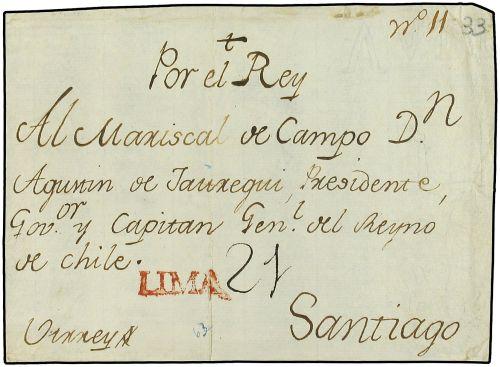 nº 11 33
t
Por el Rey
Al Mariscal de Campo D.n
Agustin de Jauregui, Presidente,
Gov.or y Capitan Gen.l del Reyno
de Chile.
LIMA 21
Virrey 63 Santiago